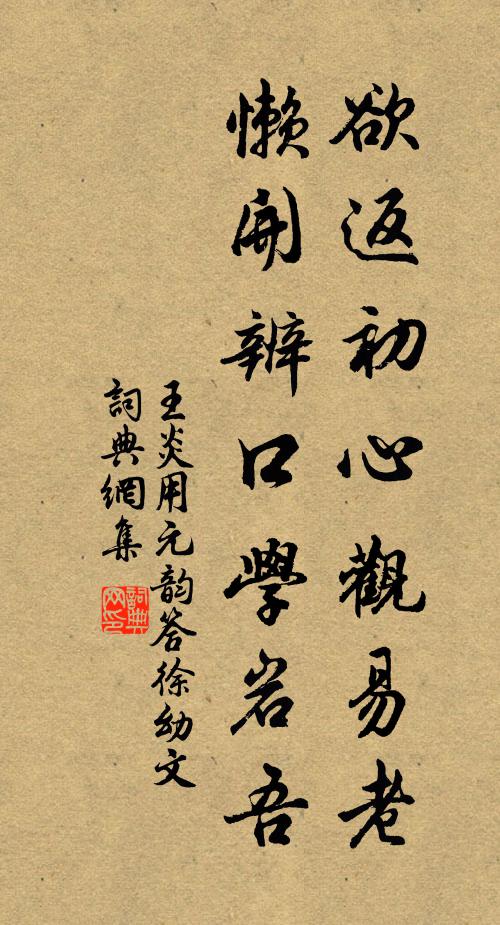 欲返初心觀易老
懶開辨口學岩吾
王炎用元韵答徐幼文
詞典網集
詞典网印